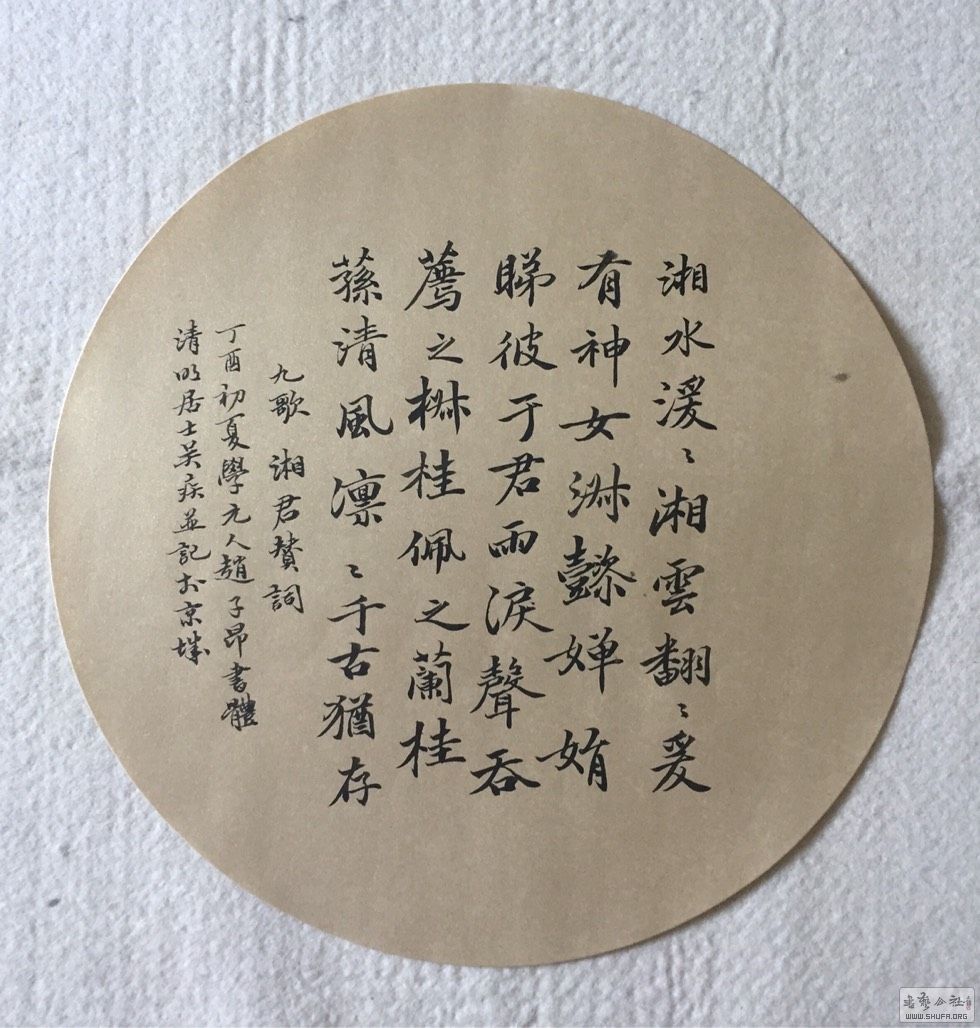 湘水湲〻湘雲翻〻爰
有神女淋懿嬋娟
睇彼于君雨淚聲吞
薦之椒桂佩之蘭桂
蓀清風凛〻千古猶存
九歌 湘君賛詞
丁酉初夏學元人趙子昂書體
清明居士吴疾並記於京城
WWW.SHUFA.ORG